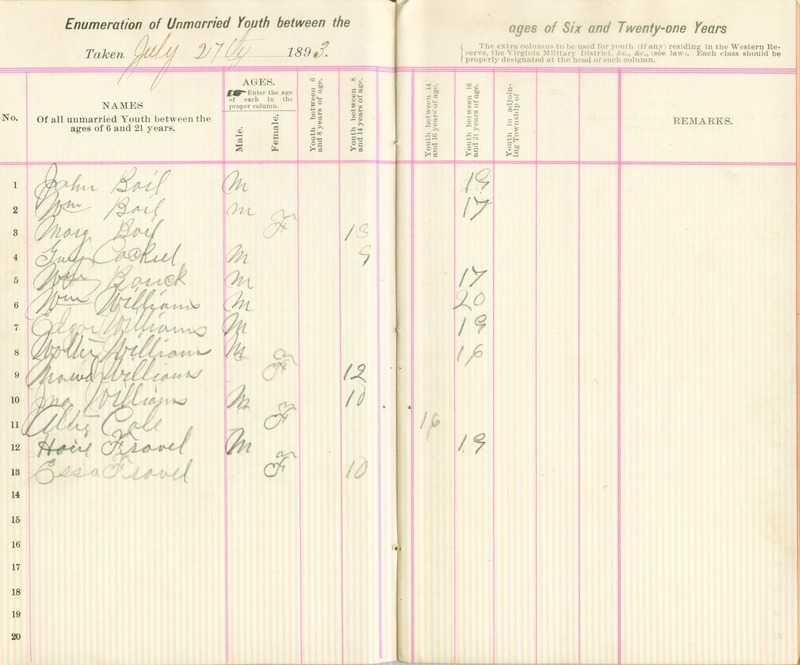 Enumeration of Unmarried Youth between the ages of Six and Twenty-one Years
Taken July 27th 1893.
{ The extra columns to be used for youth (if any) residing in the Western Re-
serve, the Virginia Military District, &c., &c., (see law). Each class should be
properly designated at the head of such column.
No.
NAMES
Of all unmarried Youth between the
ages of 6 and 21 years.
AGES.
☞ Enter the age
of each in the
proper column.
Male.
Female.
Youth between 6
and 8 years of age.
Youth between 8
and 14 years of age.
Youth between 14
and 16 years of age.
Youth between 16
and 21 years of age.
Youth in adjoin-
ing Township of
REMARKS.
1 John Boil M 19
2 Wm Boil M 17
3 Mary Boil F 13
4 Guy M 9
5 Wm M 17
6 Wm Williams M 20
7 Edgar Williams M 19
8 Walter Williams M 16
9 Williams F 12
10 Jno Williams M 10
11 Cole F 16
12 Frovel M 19
13 Essa Frovel F 10
14
15
16
17
18
19
20